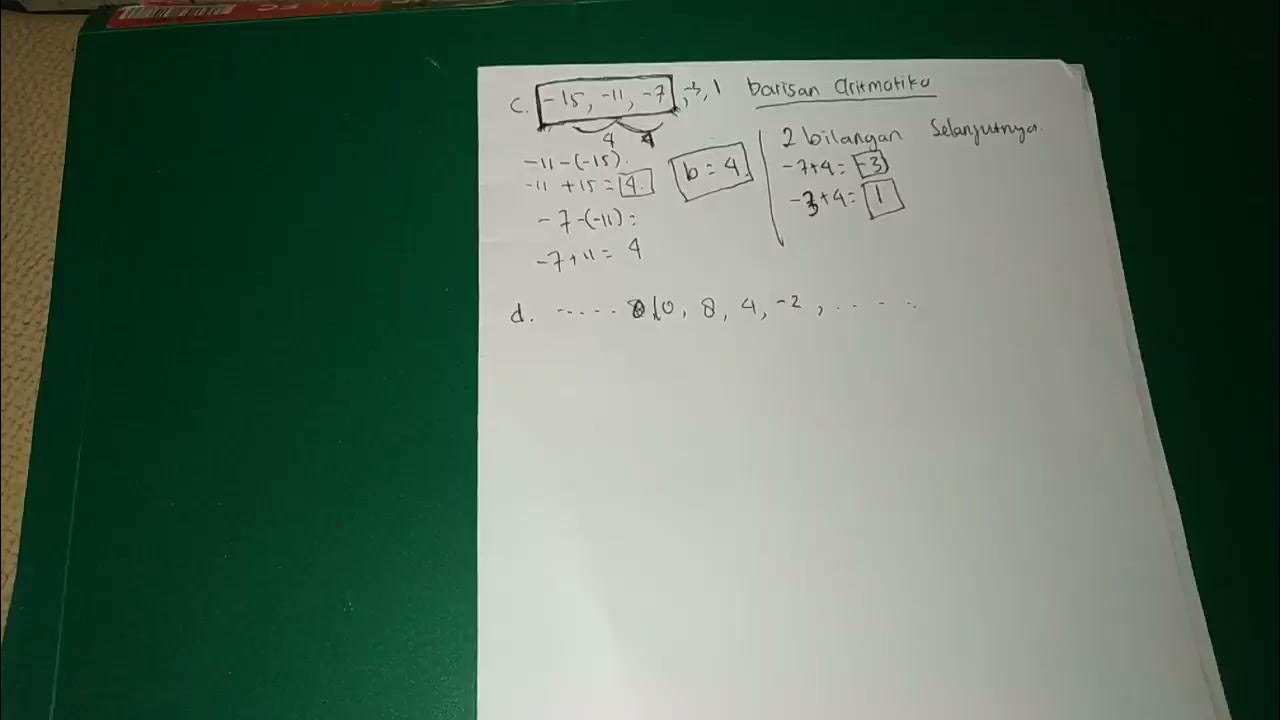 c. -15, -11, -7, -3, 1 barisan aritmatika
4 4
-11-(-15).
-11 + 15 = 4.
-7-(-11) =
-7+11 = 4
b = 4
2 bilangan selanjutnya.
-7+4 = -3
-3+4 = 1
d. ...... 10, 8, 4, -2, .....